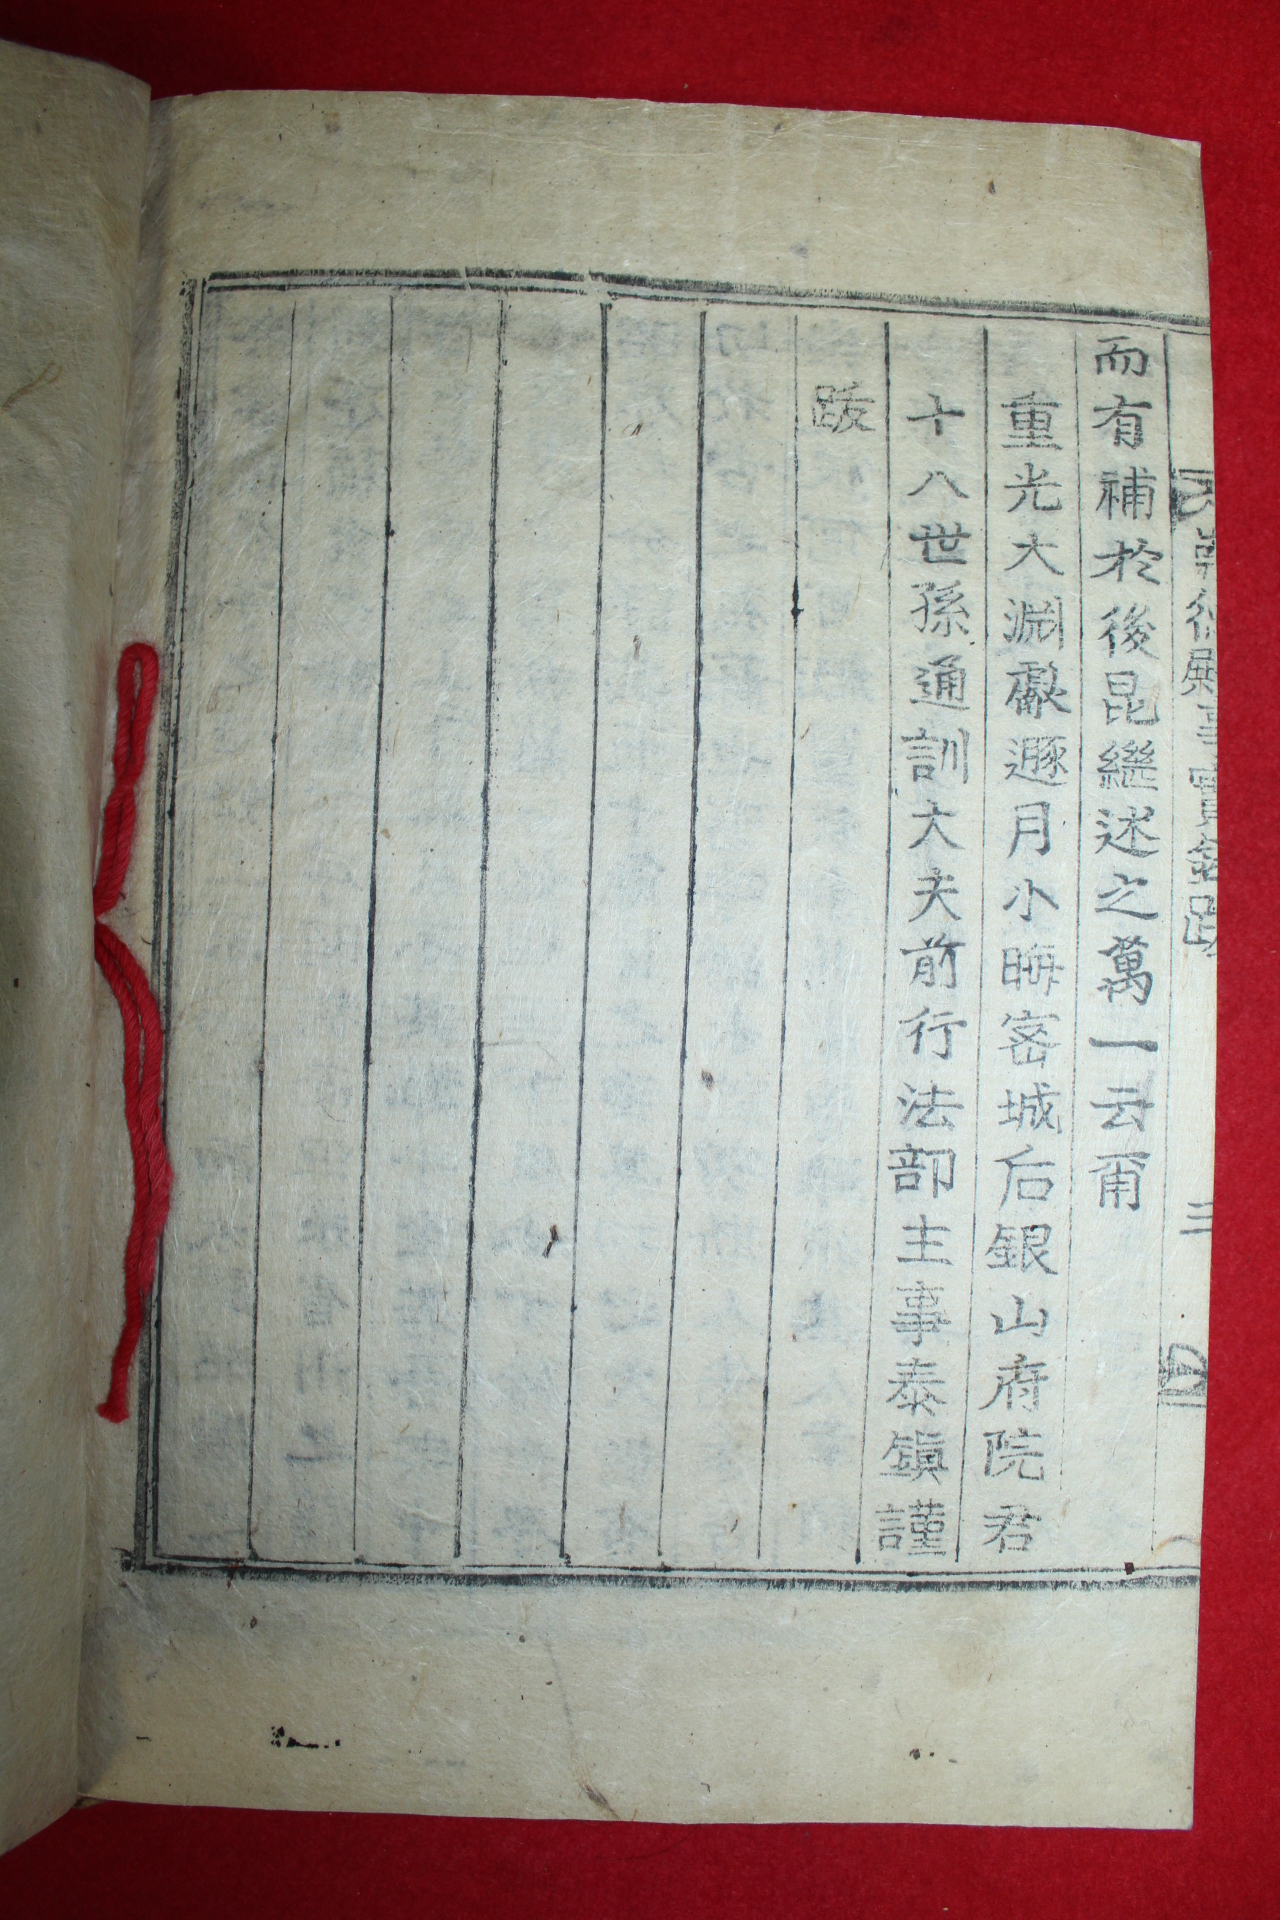 而有補於後昆繼述之萬一云爾
重光大淵獻遯月小晦密城后銀山府院君
十八世孫通訓大夫前行法部主事泰鎭謹
跋
三